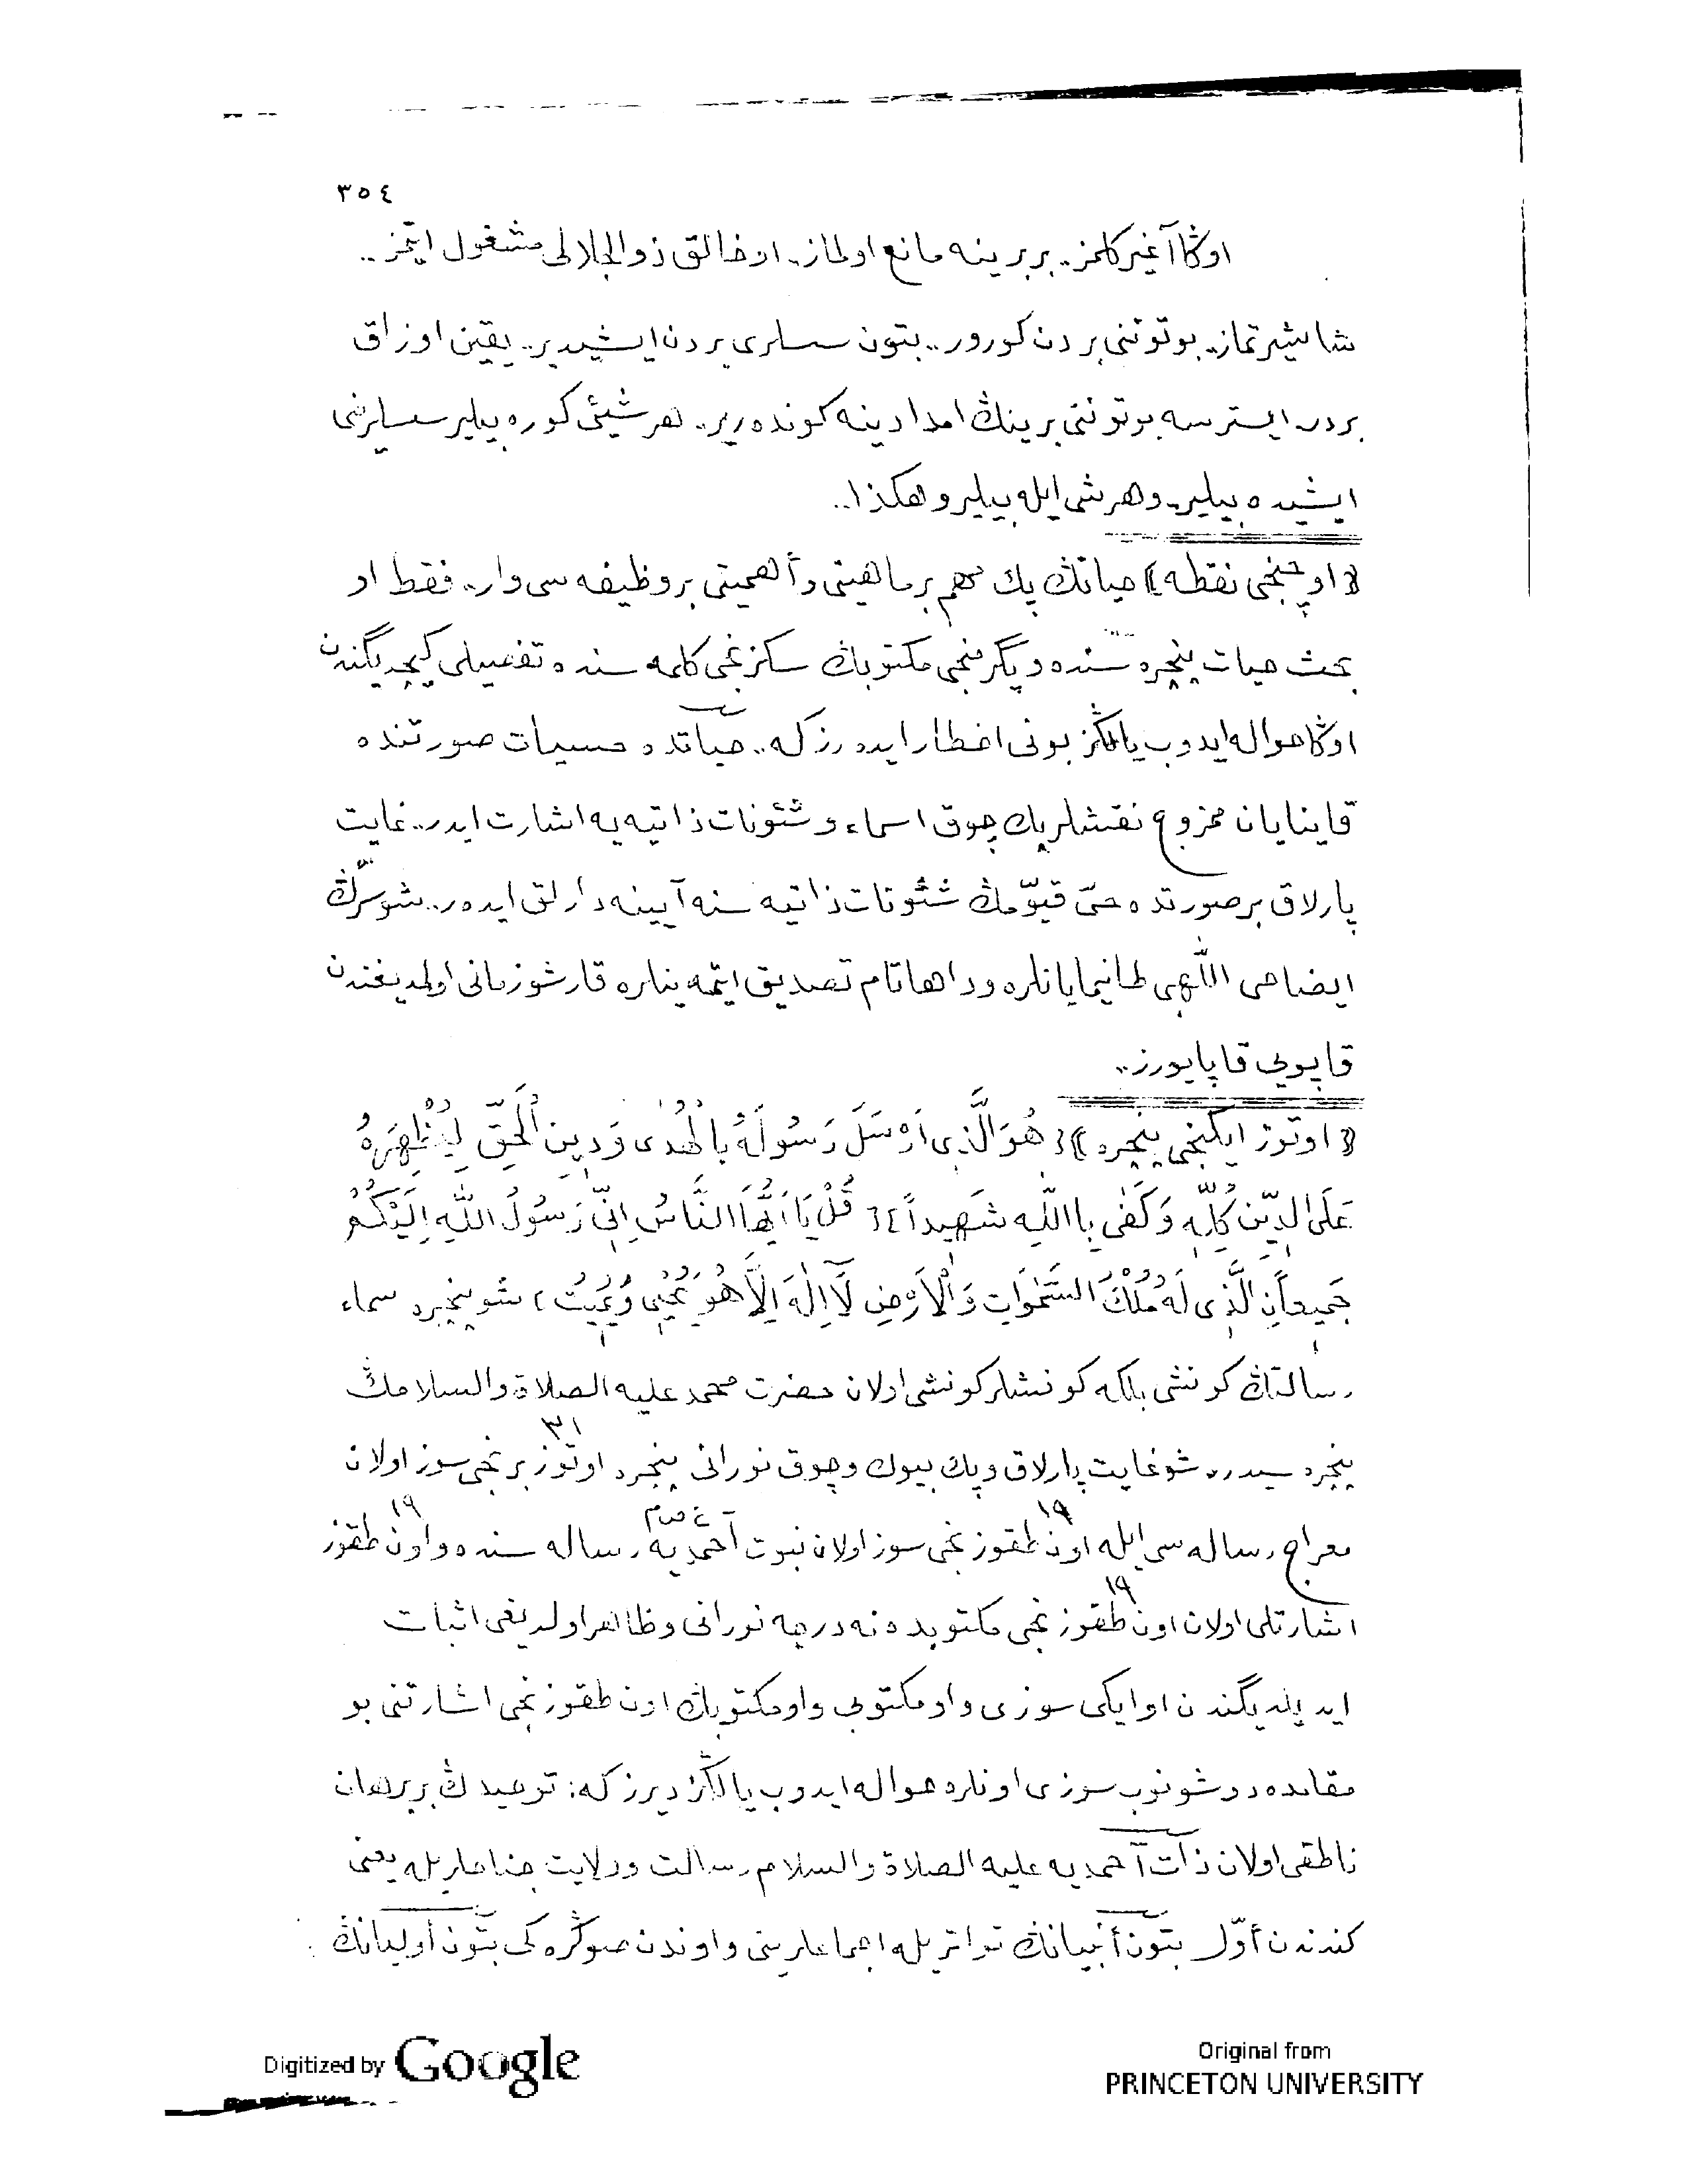 ٣٥٤
اوڭا آغير كلمز.. بر برينه مانع اولماز.. او خالق ذوالجلالى مشغول ايتمز..
شاشيرتماز.. بوتوننى بردن كورور.. بتون سسلرى بردن ايشيدير.. يقين اوزاق
بردر. ايسترسه بوتوننى برينڭ امدادينه كوندەرير.. هر شيئى كوره بيلير سسلرينى
ايشيده بيلير.. و هر شى ايله بيلير و هكذا..
﴿ اوچنجى نقطه ﴾ حياتڭ پك مهم بر ماهيتى و أهميتى بر وظيفه سى وار.. فقط او
بحث حيات پنجره سنده و يگرمنجى مكتوبڭ سكزنجى كلمه سنده تفصيلى كيچديگندن
اوڭا حواله ايدوب يالڭز بونى اخطار ايده رز كه.. حياتده حسيات صورتنده
قاينايان ممزوج نقشلر پك چوق اسماء و شئونات ذاتيه يه اشارت ايدر.. غايت
پارلاق بر صورتده حىّ قيوّمڭ شئونات ذاتيه سنه آيينه دارلق ايده ر.. شو سرّڭ
ايضاحى اللّهى طانيمايانلره و داها تام تصديق ايتمه ينلره قارشو زمانى اولمديغندن
قاپويى قاپايورز..
﴿ اوتوز ايكنجى پنجره ﴾ ﴿ هُوَ الَّذِى اَرْسَلَ رَسُولَهُ بِالْهُدٰى وَ دِينِ الْحَقِّ لِيُظْهِرَهُ
عَلَى الدِّينِ كُلِّهِ وَ كَفٰى بِااللّٰهِ شَهِيداً ﴾ ﴿ قُلْ يَا اَيُّهَا النَّاسُ اِنِّى رَسُولُ اللّٰهِ اِلَيْكُمْ
جَمِيعاًنِ الَّذِى لَهُ مُلْكُ السَّمٰوَاتِ وَالْاَرْضِ لَآ اِلٰهَ اِلَّا هُوَ يُحْيِى وَيُمِيتُ ﴾ شو پنجره سماء
رسالتڭ كونشى بلكه كونشلر كونشى اولان حضرت محمد عليه الصلاة والسلامڭ
پنجره سيدر.. شو غايت پارلاق و پك بيوك و چوق نورانى پنجره اوتوز برنجى سوز اولان
٣١
معراج رساله سى ايله اون طقوزنجى سوز اولان نبوت آحمديه رساله سنده و اون طقوز
١٩ ع ص م ١٩
اشارتلى اولان اون طقوزنجى مكتوبده نه درجه نورانى و ظاهر اولديغى اثبات
١٩
ايديلديگندن او ايكى سوزى و او مكتوبى و او مكتوبڭ اون طقوزنجى اشارتنى بو
مقامده دوشونوب سوزى اونلره حواله ايدوب يالڭز ديرز كه: توحيدڭ بر برهان
ناطقى اولان ذات آحمديه عليه الصلاة والسلام رسالت و ولايت جناحلريله يعنى
كندندن أوّل بتون أنبيانڭ تواتر يله اجماعلرينى و اوندن صوڭره كى بتون أوليانڭ
Digitized by Google
Original from
PRINCETON UNIVERSITY